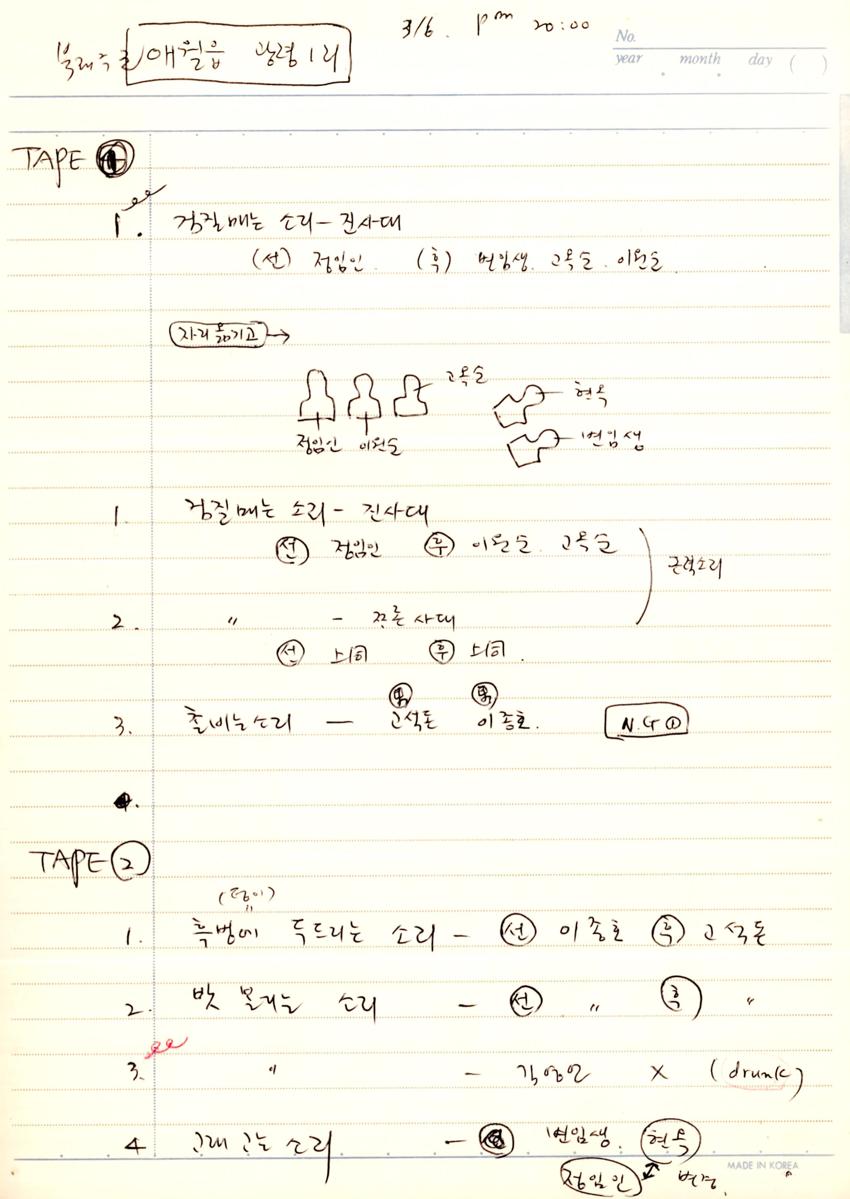 3/6. pm 20:00
북제주군 애월읍 광령1리
No.
year month day ( )
TAPE 1
1. 검질매는 소리 - 진사대
(선) 정임인 (훅) 변임생. 고옥순. 이원순
자리옮기고 →
고옥순
현옥
정임인 이원순
변임생
1. 검질매는 소리 - 진사대
선 정임인 후 이원순. 고옥순
근력소리
2. " - 쯔른사대
선 上同 후 上同.
男 男
3. 촐비는소리 — 고석돈 이종호. N.G ①
4.
TAPE 2
1. 흑벙에 두드리는 소리 - 선 이종호 훅 고석돈
2. 밧 볼리는 소리 - 선 " 훅 "
3. " - 강영언 X (drunk)
4 고래 고는 소리 - 변임생. 현옥
정임인 변경.
MADE IN KOREA